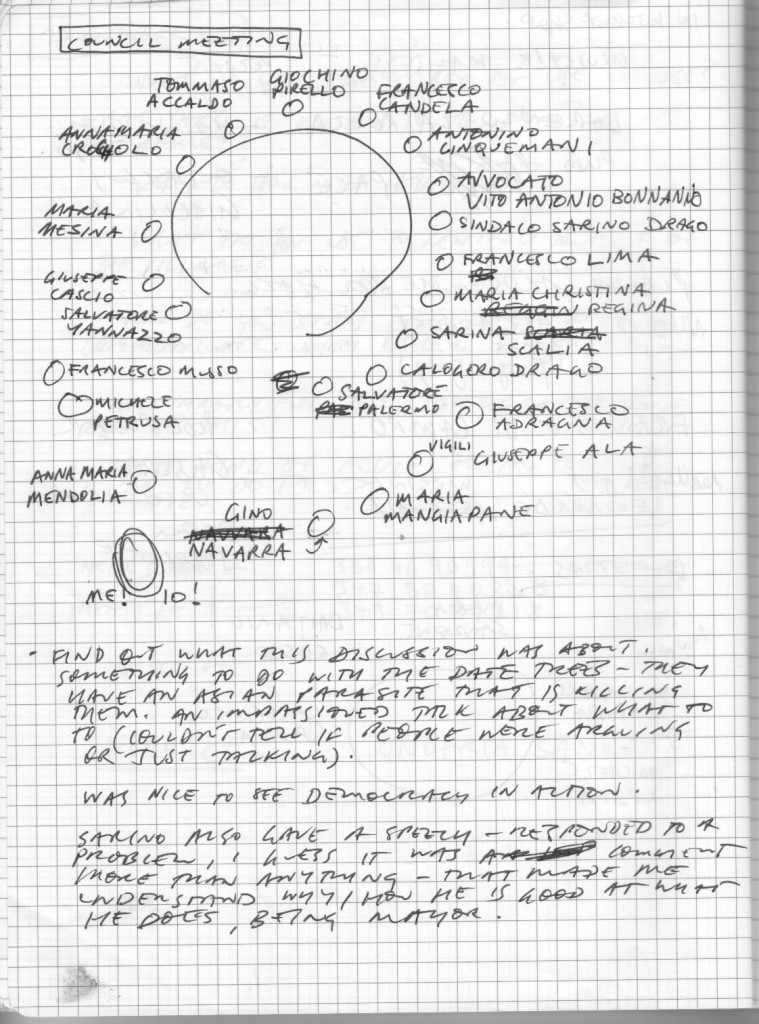 COUNCIL MEETING
TOMMASO
ACCALDO
GIOCHINO
PIRELLO
FRANCESCO
CANDELA
ANNAMARIA
CROCHOLO
ANTONINO
CINQUEMANI
AVVOCATO
VITO ANTONIO BONNANNO
MARIA
MESINA
SINDACO SARINO DRAGO
FRANCESCO LIMA
GIUSEPPE
CASCIO
MARIA CHRISTINA
REGINA
SALVATORE
YANNAZZO
SARINA
SCALIA
FRANCESCO MUSSO
CALOGORO DRAGO
MICHELE
PETRUSA
SALVATORE
PALERMO
FRANCESCO
ADRAGNA
VIGILI
GIUSEPPE ALA
ANNA MARIA
MENDOLIA
MARIA
MANGIAPANE
GINO
NAVARRA
NAVARRA
ME! IO!
- FIND OUT WHAT THIS DISCUSSION WAS ABOUT.
SOMETHING TO DO WITH THE DATE TREES - THEY
HAVE AN ASIAN PARASITE THAT IS KILLING
THEM. AN IMPASSIONED TALK ABOUT WHAT TO
TO (COULDN'T TELL IF PEOPLE WERE ARGUING
OR JUST TALKING).
WAS NICE TO SEE DEMOCRACY IN ACTION.
SARINO ALSO GAVE A SPEECH - RESPONDED TO A
PROBLEM, I GUESS IT WAS COMMENT
MORE THAN ANYTHING - THAT MADE ME
UNDERSTAND WHY/HOW HE IS GOOD AT WHAT
HE DOES, BEING MAYOR.